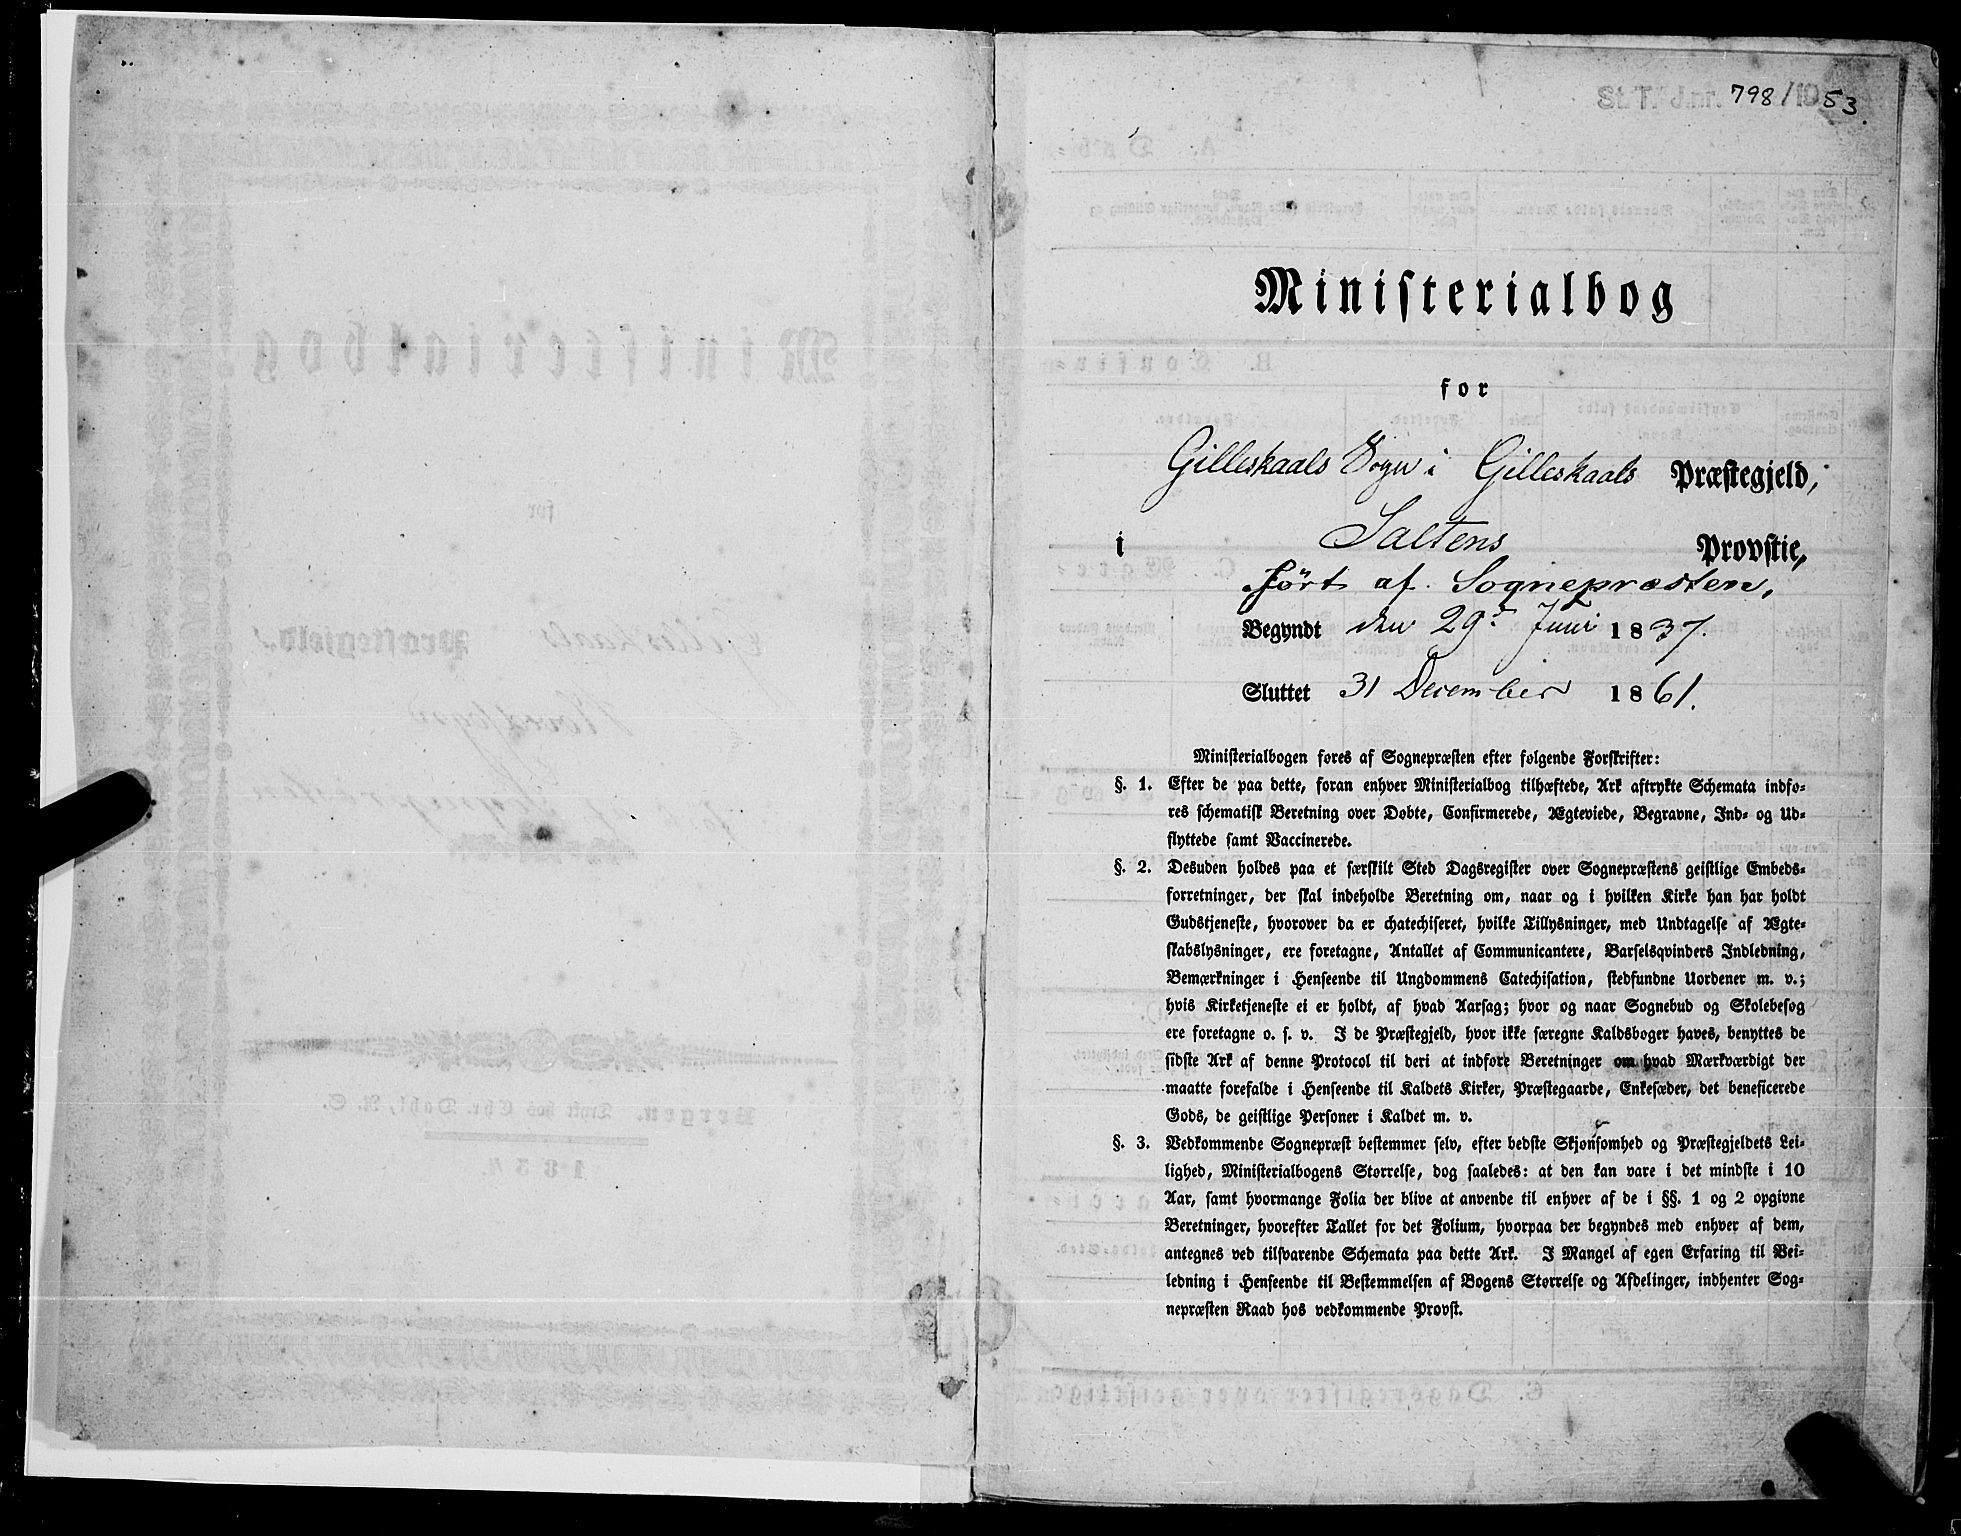 St. T. J.nr. 798/1953.
Ministerialbog
for
Gilleskaals Sogn i Gilleskaals Præstegjeld,
i Saltens Provstie,
ført af Sognepræsten,
Begyndt den 29de Juni 1837.
Sluttet 31 December 1861.
Ministerialbogen føres af Sognepræsten efter følgende Forskrifter:
§. 1. Efter de paa dette, foran enhver Ministerialbog tilhæftede, Ark aftrykte Schemata indfø-
res schematisk Beretning over Døbte, Confirmerede, Ægteviede, Begravne, Ind- og Ud-
flyttede samt Vaccinerede.
§. 2. Desuden holdes paa et særskilt Sted Dagsregister over Sognepræstens geistlige Embeds-
forretninger, der skal indeholde Beretning om, naar og i hvilken Kirke han har holdt
Gudstjeneste, hvorover da er chatechiseret, hvilke Tillysninger, med Undtagelse af Ægte-
skabslysninger, ere foretagne, Antallet af Communicantere, Barselsqvinders Indledning,
Bemærkninger i Henseende til Ungdommens Catechisation, stedfundne Uordener m. v.;
hvis Kirketjeneste ei er holdt, af hvad Aarsag; hvor og naar Sognebud og Skolebesøg
ere foretagne o. s. v. I de Præstegjeld, hvor ikke særegne Kaldsbøger haves, benyttes de
sidste Ark af denne Protocol til deri at indføre Beretninger om hvad Mærkværdigt der
maatte forefalde i Henseende til Kaldets Kirker, Præstegaarde, Enkesæder, det beneficerede
Gods, de geistlige Personer i Kaldet m. v.
§. 3. Vedkommende Sognepræst bestemmer selv, efter bedste Skjønsomhed og Præstegjeldets Lei-
lighed, Ministerialbogens Størrelse, dog saaledes: at den kan vare i det mindste i 10
Aar, samt hvormange Folia der blive at anvende til enhver af de i §§. 1 og 2 opgivne
Beretninger, hvorefter Tallet for det Folium, hvorpaa der begyndes med enhver af dem,
antegnes ved tilsvarende Schemata paa dette Ark. I Mangel af egen Erfaring til Vei-
ledning i Henseende til Bestemmelsen af Bogens Størrelse og Afdelinger, indhenter Sog-
nepræsten Raad hos vedkommende Provst.